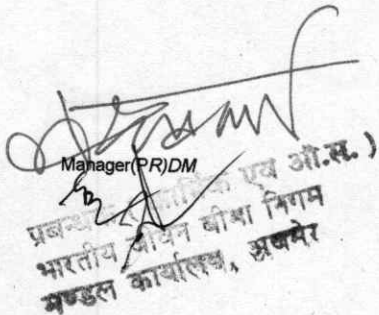 Manager(PR)DM
प्रबन्धक (कार्मिक एवं औ.स.)
भारतीय जीवन बीमा निगम
मण्डल कार्यालय, अजमेर